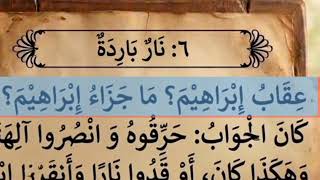 ٦: نَارٌ بَارِدَةٌ
عِقَابُ إِبْرَاهِيْمَ؟ مَا جَزَاءُ إِبْرَاهِيْمَ؟
كَانَ الْجَوَابُ: حَرِّقُوهُ وَ انْصُرُوا آلِهَتَ
وَهَكَذَا كَانَ، أَوْ قَدُوا نَارًا وَأَلْقَوْا